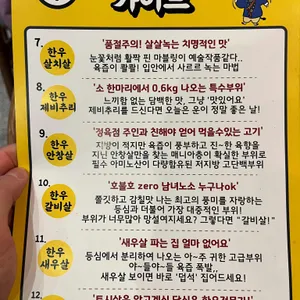 가이드
7.
한우
살치살
'품절주의! 살살녹는 치명적인 맛'
눈꽃처럼 활짝 핀 마블링이 예술작품같다..
육즙이 활활! 입안에서 사르르 녹는 마법
8.
한우
제비추리
'소 한마리에서 0.6kg 나오는 특수부위'
느끼함 없는 담백한 맛, 그냥 '맛있어요'
제비추리를 드신다면 오늘은 운이 정말 좋은 날!
9.
한우
안창살
'정육점 주인과 친해야 얻어 먹을수있는 고기'
지방이 적지만 육즙이 풍부하고 진~한 육향을
지닌 안창살만을 찾는 매니아층이 확실한 부위로
필수 아미노산이 다량함유된 고단백 부위에요.
10.
한우
갈비살
'호불호 zero 남녀노소 누구나ok'
쫄깃하고 감칠맛 나는 최고의 풍미를 자랑하는
등심과 더불어 가장 대중적인 부위!
부위가 너무많아 망설여지세요? 그렇다면 "갈비살!"
11.
한우
새우살
'새우살 파는 집 얼마 없어요'
등심에서 분리하여 나오는 아~주 귀한 고급부위
야~들야~들 육즙 폭발,,
새우살 보이면 바로 '덥석' 집어드세요!
12.